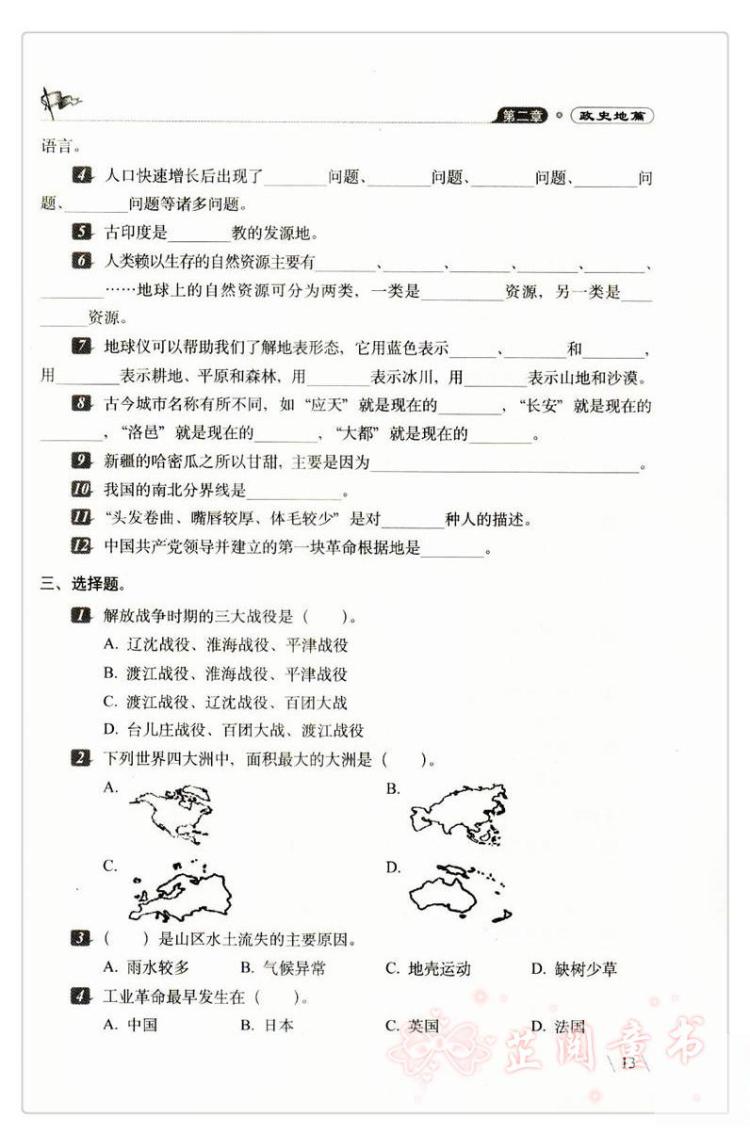 第二章 政史地篇
语言。
4 人口快速增长后出现了________问题、________问题、________问题、________问
题、________问题等诸多问题。
5 古印度是________教的发源地。
6 人类赖以生存的自然资源主要有________、________、________、________、
________……地球上的自然资源可分为两类，一类是________资源，另一类是____
______资源。
7 地球仪可以帮助我们了解地表形态，它用蓝色表示______、________和________，
用________表示耕地、平原和森林，用________表示冰川，用________表示山地和沙漠。
8 古今城市名称有所不同，如“应天”就是现在的________，“长安”就是现在的
________，“洛邑”就是现在的________，“大都”就是现在的________。
9 新疆的哈密瓜之所以甘甜，主要是因为________________________________。
10 我国的南北分界线是____________。
11 “头发卷曲、嘴唇较厚、体毛较少”是对________种人的描述。
12 中国共产党领导并建立的第一块革命根据地是________。
三、选择题。
1 解放战争时期的三大战役是（　　）。
A. 辽沈战役、淮海战役、平津战役
B. 渡江战役、淮海战役、平津战役
C. 渡江战役、辽沈战役、百团大战
D. 台儿庄战役、百团大战、渡江战役
2 下列世界四大洲中，面积最大的大洲是（　　）。
A. B.
C. D.
3 （　　）是山区水土流失的主要原因。
A. 雨水较多 B. 气候异常 C. 地壳运动 D. 缺树少草
4 工业革命最早发生在（　　）。
A. 中国 B. 日本 C. 英国 D. 法国
芷阅童书
13